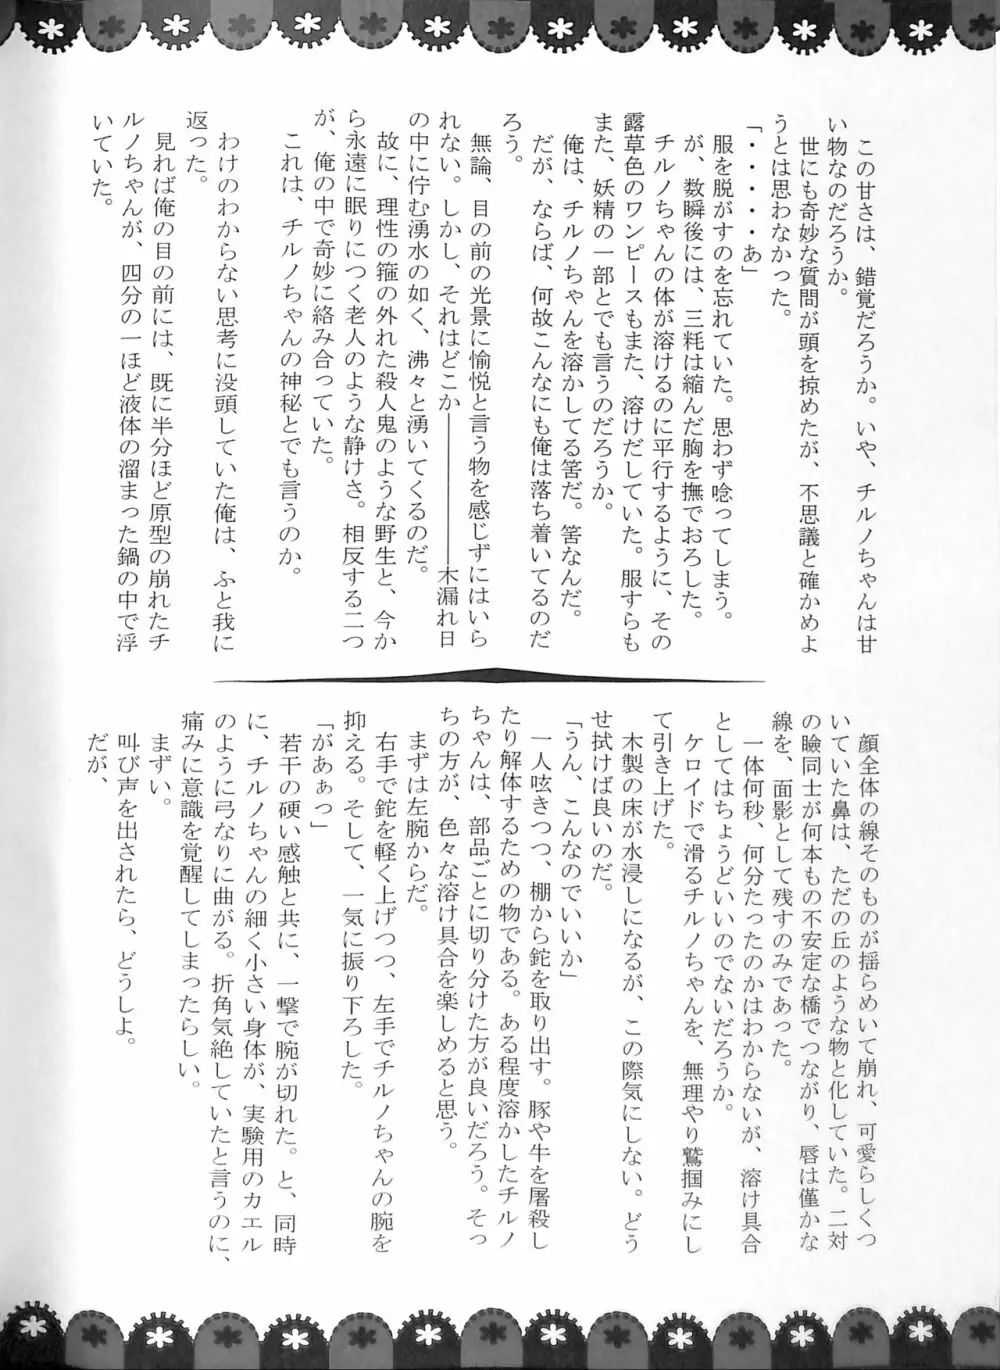 この甘さは、錯覚だろうか。いや、チルノちゃんは甘
い物なのだろうか。
世にも奇妙な質問が頭を掠めたが、不思議と確かめよ
うとは思わなかった。
「・・・・・あ」
服を脱がすのを忘れていた。思わず唸ってしまう。
が、数瞬後には、三粍は縮んだ胸を撫でおろした。
チルノちゃんの体が溶けるのに平行するように、その
露草色のワンピースもまた、溶けだしていた。服すらも
また、妖精の一部とでも言うのだろうか。
俺は、チルノちゃんを溶かしてる筈だ。筈なんだ。
だが、ならば、何故こんなにも俺は落ち着いてるのだ
ろう。
無論、目の前の光景に愉悦と言う物を感じずにはいら
れない。しかし、それはどこか――――――木漏れ日
の中に佇む湧水の如く、沸々と湧いてくるのだ。
故に、理性の箍の外れた殺人鬼のような野生と、今か
ら永遠に眠りにつく老人のような静けさ。相反する二つ
が、俺の中で奇妙に絡み合っていた。
これは、チルノちゃんの神秘とでも言うのか。
わけのわからない思考に没頭していた俺は、ふと我に
返った。
見れば俺の目の前には、既に半分ほど原型の崩れたチ
ルノちゃんが、四分の一ほど液体の溜まった鍋の中で浮
いていた。
顔全体の線そのものが揺らめいて崩れ、可愛らしくつ
いていた鼻は、ただの丘のような物と化していた。二対
の瞼同士が何本もの不安定な橋でつながり、唇は僅かな
線を、面影として残すのみであった。
一体何秒、何分たったのかはわからないが、溶け具合
としてはちょうどいいのでないだろうか。
ケロイドで滑るチルノちゃんを、無理やり鷲掴みにし
て引き上げた。
木製の床が水浸しになるが、この際気にしない。どう
せ拭けば良いのだ。
「うん、こんなのでいいか」
一人呟きつつ、棚から鉈を取り出す。豚や牛を屠殺し
たり解体するための物である。ある程度溶かしたチルノ
ちゃんは、部品ごとに切り分けた方が良いだろう。そっ
ちの方が、色々な溶け具合を楽しめると思う。
まずは左腕からだ。
右手で鉈を軽く上げつつ、左手でチルノちゃんの腕を
抑える。そして、一気に振り下ろした。
「があぁっ」
若干の硬い感触と共に、一撃で腕が切れた。と、同時
に、チルノちゃんの細く小さい身体が、実験用のカエル
のように弓なりに曲がる。折角気絶していたと言うのに、
痛みに意識を覚醒してしまったらしい。
まずい。
叫び声を出されたら、どうしよ。
だが、